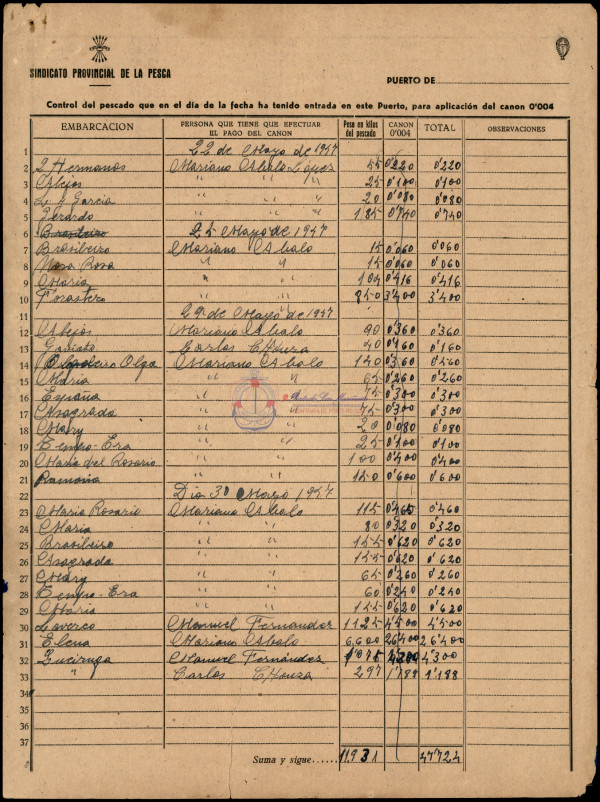 SINDICATO PROVINCIAL DE LA PESCA
PUERTO DE
Control del pescado que en el día de la fecha ha tenido entrada en este Puerto, para aplicación del canon 0'004
EMBARCACION PERSONA QUE TIENE QUE EFECTUAR EL PAGO DEL CANON Peso en kilos del pescado CANON 0'004 TOTAL OBSERVACIONES
1 22 de Mayo de 1947
2 2 Hermanos Mariano Abalo López 55 0'220 0'220
3 Abejos " " " 25 0'100 0'100
4 García " " " 20 0'080 0'080
5 Gerardo " " " 185 0'740 0'740
6 Brasileiro 25 Mayo de 1947
7 Brasileiro Mariano Abalo 15 0'060 0'060
8 Rosa " " 15 0'060 0'060
9 Maria " " 104 0'416 0'416
10 Forastero " " 850 3'400 3'400
11 29 de Mayo de 1947
12 Abejos Mariano Abalo 90 0'360 0'360
13 Carlos Chouza 40 0'160 0'160
14 Olga Mariano Abalo 140 0'560 0'560
15 Maria " " 65 0'260 0'260
16 España " " 75 0'300 0'300
17 Asagrada " " 75 0'300 0'300
18 Mary " " 20 0'080 0'080
19 Tempo-Era " " 25 0'100 0'100
20 Maria del Rosario " " 100 0'400 0'400
21 Ramona " " 150 0'600 0'600
22 Dia 30 Mayo 1947
23 Maria Rosario Mariano Abalo 115 0'460 0'460
24 Maria " " 80 0'320 0'320
25 Brasileiro " " 155 0'620 0'620
26 Asagrada " " 155 0'620 0'620
27 Mary " " 65 0'260 0'260
28 Tempo-Era " " 60 0'240 0'240
29 Maria " " 155 0'620 0'620
30 Manuel Fernández 1125 4'500 4'500
31 Elena Mariano Abalo 6,600 26'400 26'400
32 Manuel Fernández 1'075 4'300 4'300
33 " Carlos Chouza 297 1'188 1'188
34
35
36
37
Suma y sigue...... 11.931 47'724